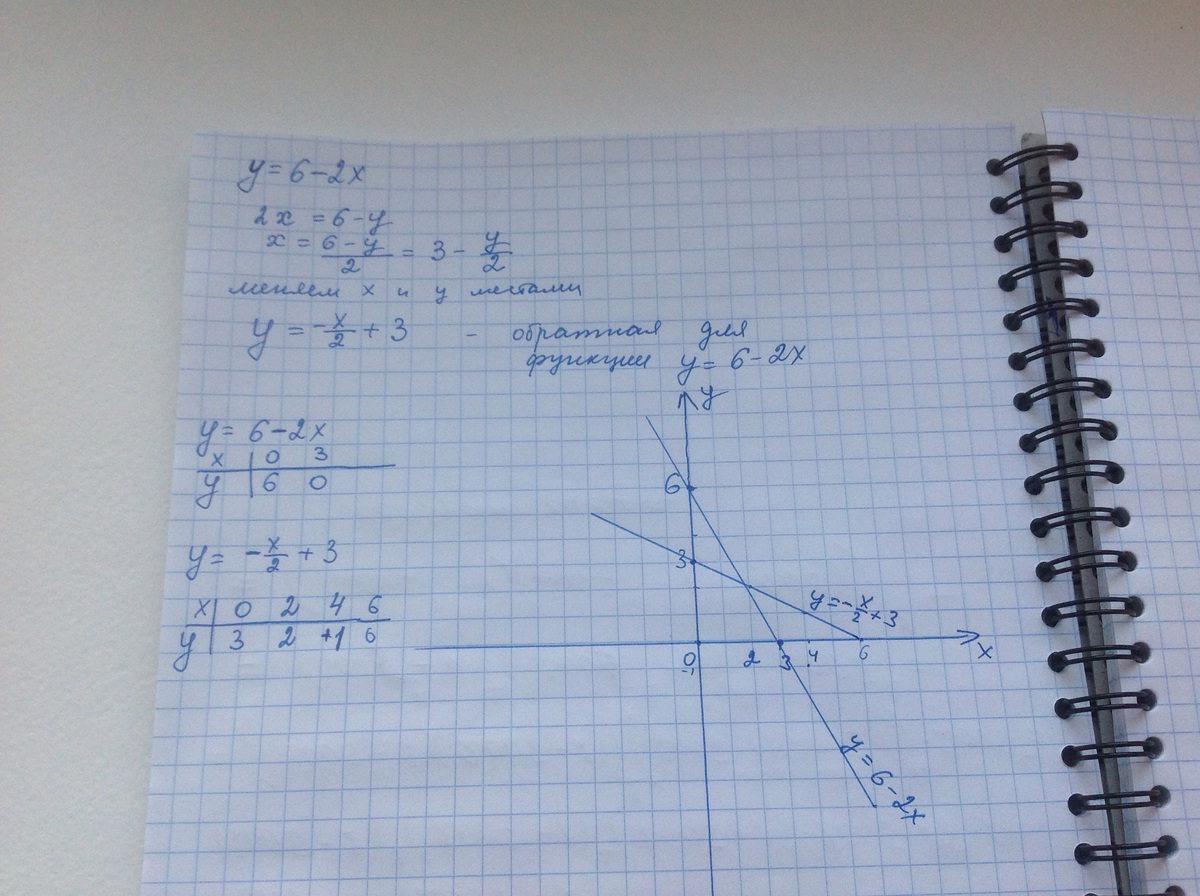 y = 6 - 2x
2x = 6 - y
x = (6 - y)/2 = 3 - y/2
меняем x и y местами
y = -x/2 + 3 - обратная для
функции y = 6 - 2x
y = 6 - 2x
x | 0 3
y | 6 0
y = -x/2 + 3
x | 0 2 4 6
y | 3 2 +1 6
y
6
3
y = -x/2 + 3
0 2 3 4 6 x
-1
y = 6 - 2x